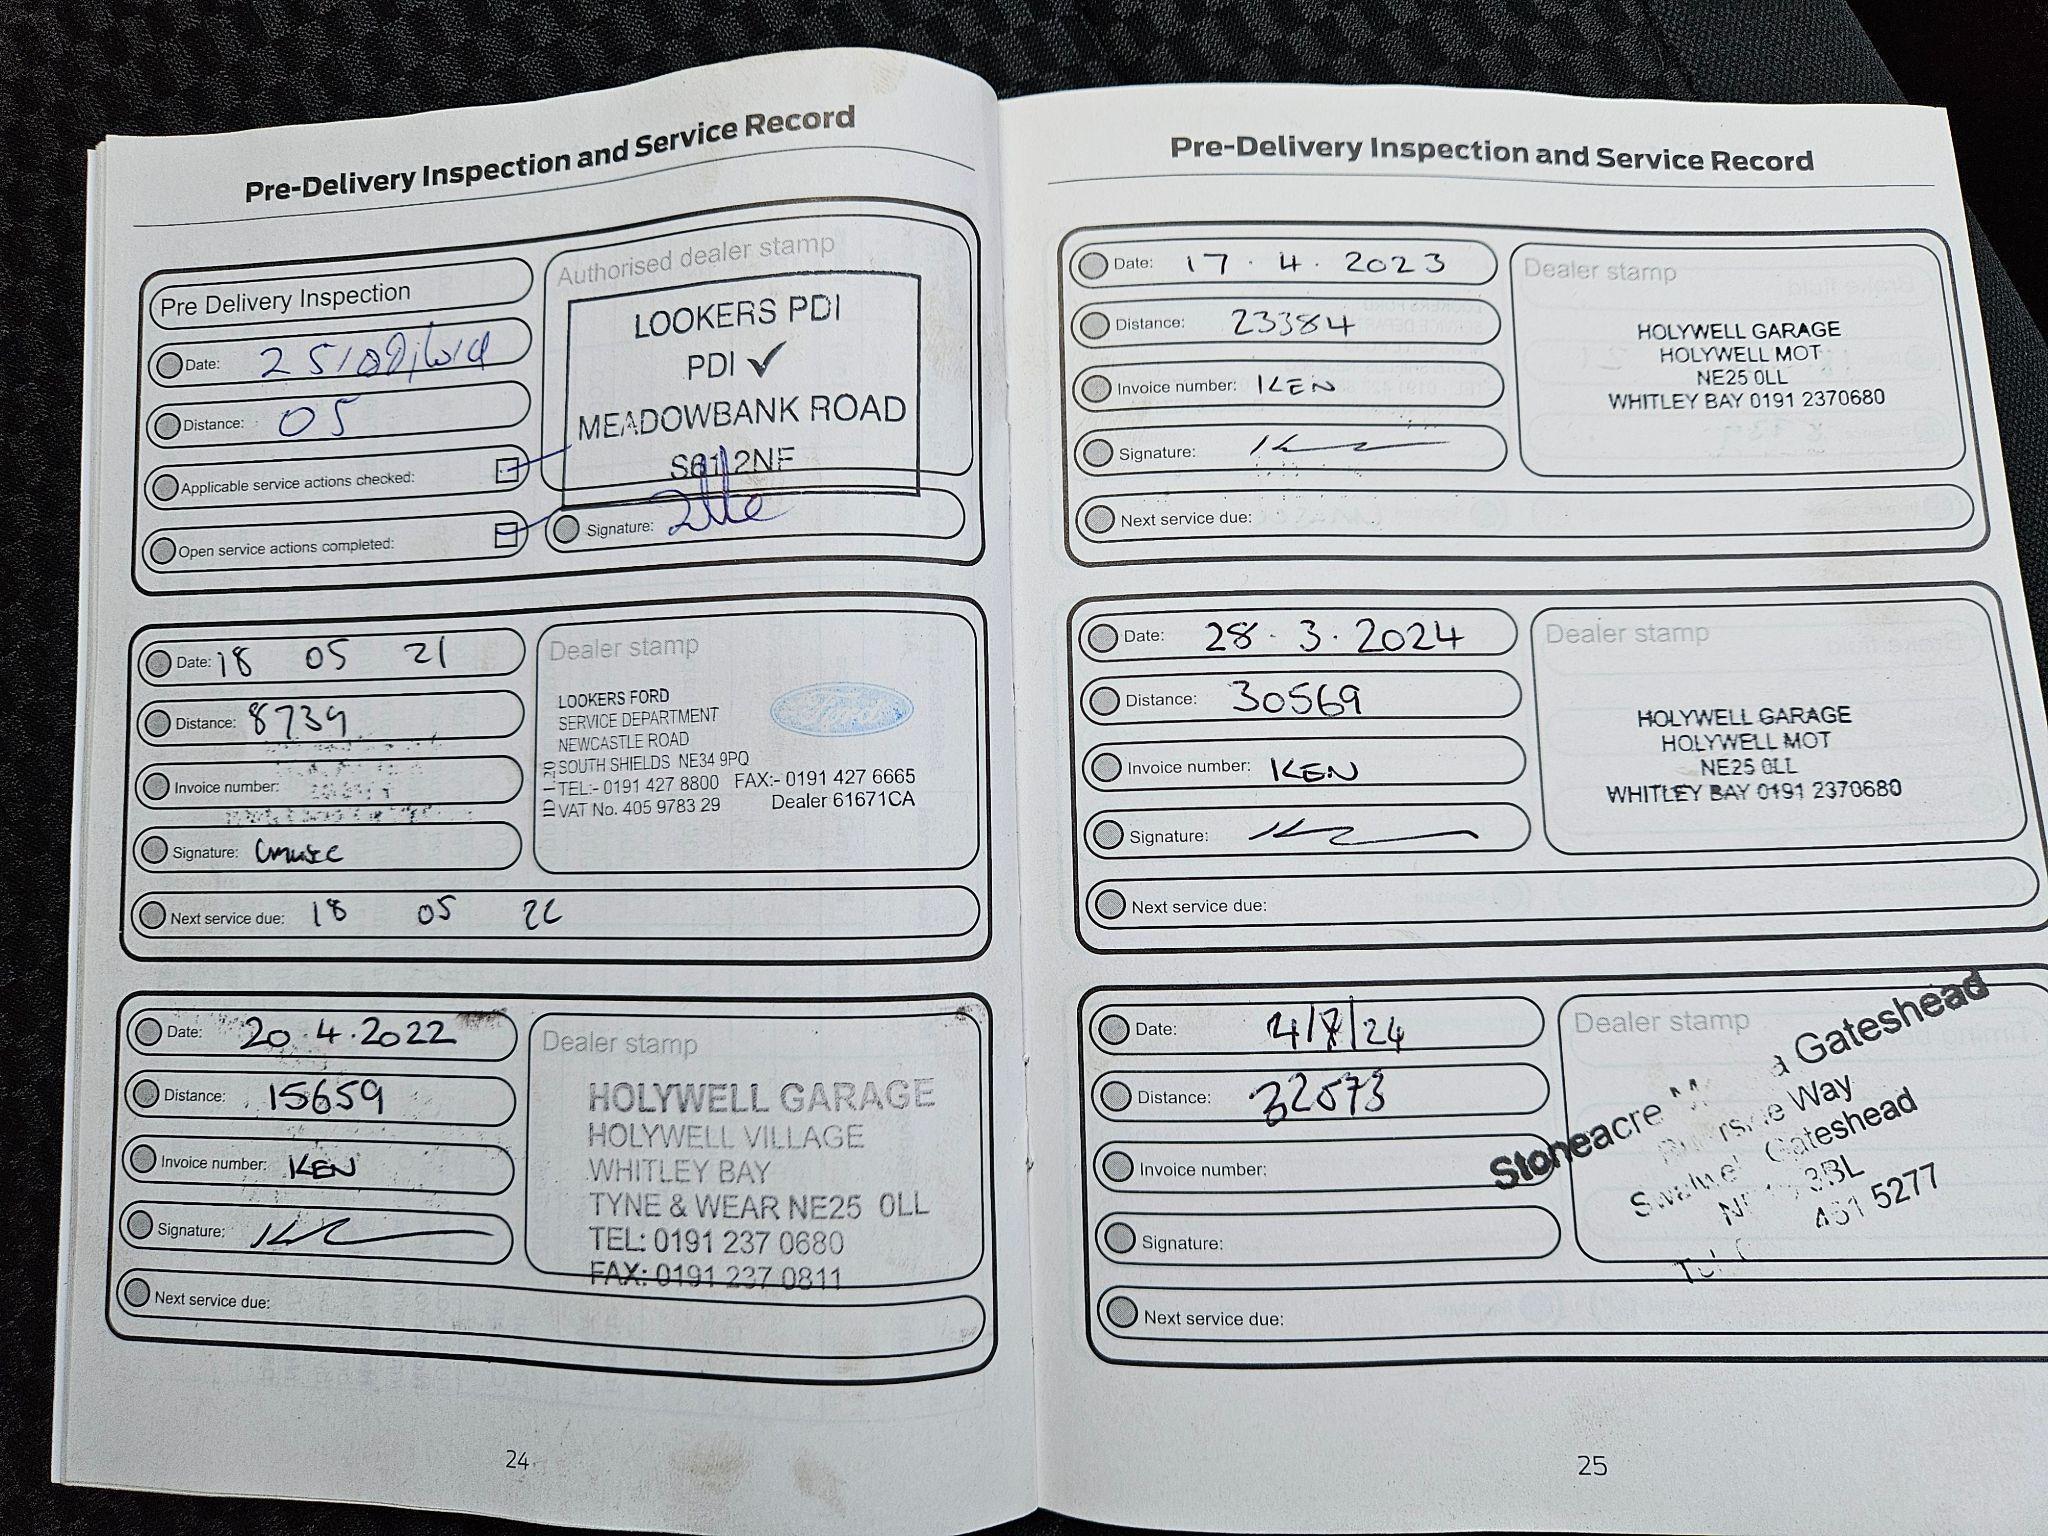 Pre-Delivery Inspection and Service Record
Pre Delivery Inspection
Date:
Distance: 05
Applicable service actions checked:
Open service actions completed:
Authorised dealer stamp
LOOKERS PDI
PDI ✓
MEADOWBANK ROAD
2NF
Signature:
Date: 18 05 21
Distance: 8739
Invoice number:
Signature:
Next service due: 18 05 22
Dealer stamp
LOOKERS FORD
SERVICE DEPARTMENT
NEWCASTLE ROAD
SOUTH SHIELDS NE34 9PQ
TEL:- 0191 427 8800 FAX:- 0191 427 6665
VAT No. 405 9783 29 Dealer 61671CA
Ford
Date: 20.4.2022
Distance: 15659
Invoice number: KEN
Signature:
Next service due:
Dealer stamp
HOLYWELL GARAGE
HOLYWELL VILLAGE
WHITLEY BAY
TYNE & WEAR NE25 0LL
TEL: 0191 237 0680
FAX: 0191 237 0811
24
Pre-Delivery Inspection and Service Record
Date: 17.4.2023
Distance: 23384
Invoice number: KEN
Signature:
Next service due:
Dealer stamp
HOLYWELL GARAGE
HOLYWELL MOT
NE25 0LL
WHITLEY BAY 0191 2370680
Date: 28.3.2024
Distance: 30569
Invoice number: KEN
Signature:
Next service due:
Dealer stamp
HOLYWELL GARAGE
HOLYWELL MOT
NE25 0LL
WHITLEY BAY 0191 2370680
Date: 4/7/24
Distance: 32573
Invoice number:
Signature:
Next service due:
Dealer stamp
Stoneacre Gateshead
Way
Gateshead
3BL
5277
25